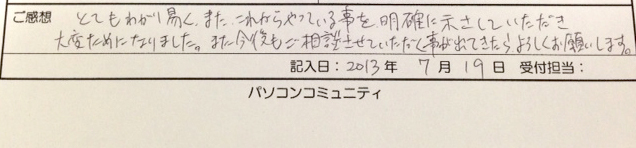 ご感想 とてもわかり易く、また、これからやっている事を明確に示さしていただき
大変ためになりました。また今後もご相談させていただく事が出てきたらよろしくお願いします。
記入日：2013年 7月19日 受付担当：
パソコンコミュニティ